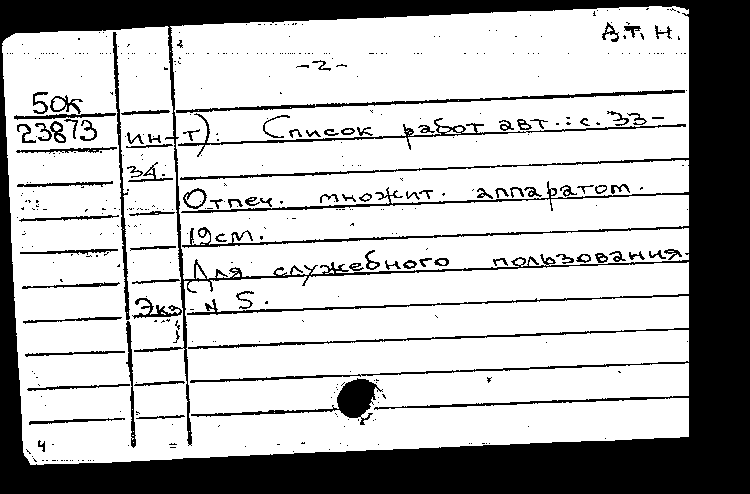 А.Т. Н.
-2-
50к
23873 ин-т). Список работ авт.: с. 33-
34.
Отпеч. множит. аппаратом.
19см.
Для служебного пользования.
Экз. N 5.
4